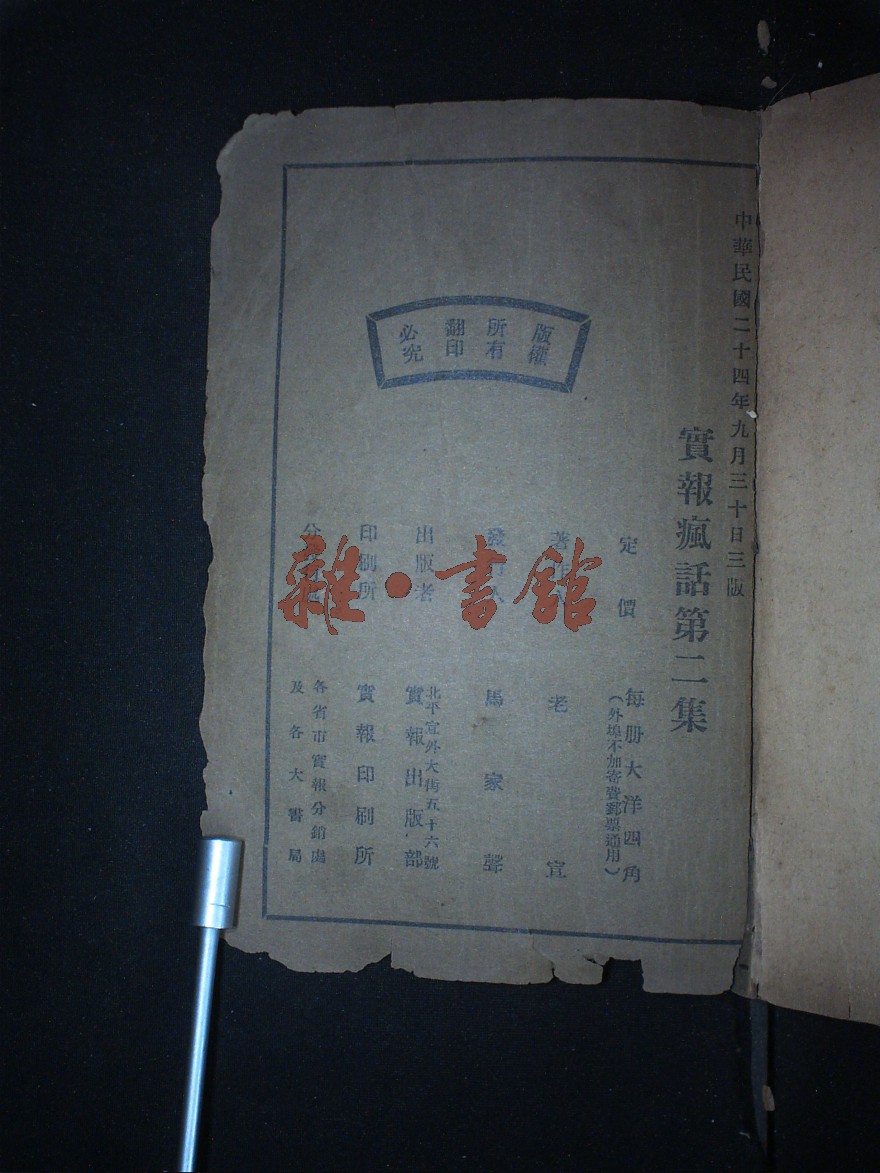 中華民國二十四年九月三十日三版
實報瘋話第二集
定價
每册大洋四角
（外埠不加寄費郵票通用）
著作人
老宣
發行人
馬家聲
出版者
北平宣外大街五十六號
實報出版部
印刷所
實報印刷所
各省市實報分銷處
及各大書局
版權
所有
翻印
必究
雜·書館